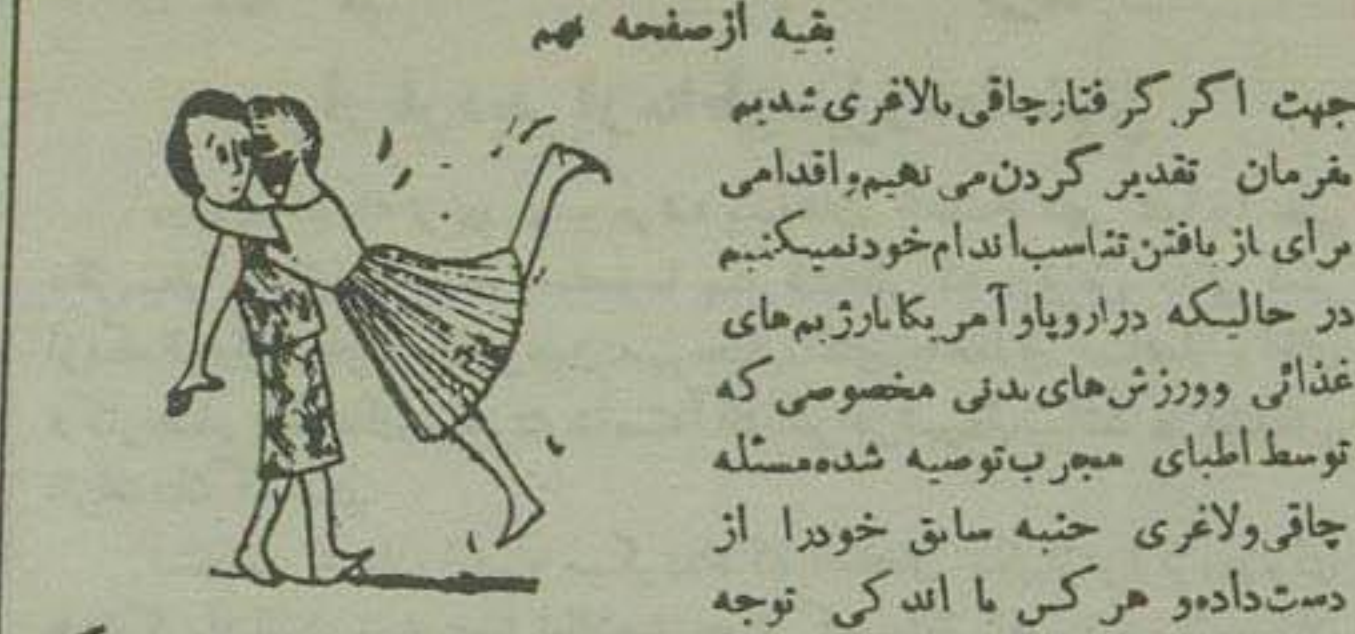 بقیه از صفحه نهم
جهت اگر گرفتار چاقی یا لاغری شدیم
بفرمان تقدیر گردن می نهیم و اقدامی
برای باز یافتن تناسب اندام خود نمیکنیم
در حالیکه در اروپا و آمریکا با رژیم های
غذائی و ورزش های بدنی مخصوصی که
توسط اطبای مجرب توصیه شده مسئله
چاقی و لاغری جنبه سابق خود را از
دست داده و هر کس با اندکی توجه